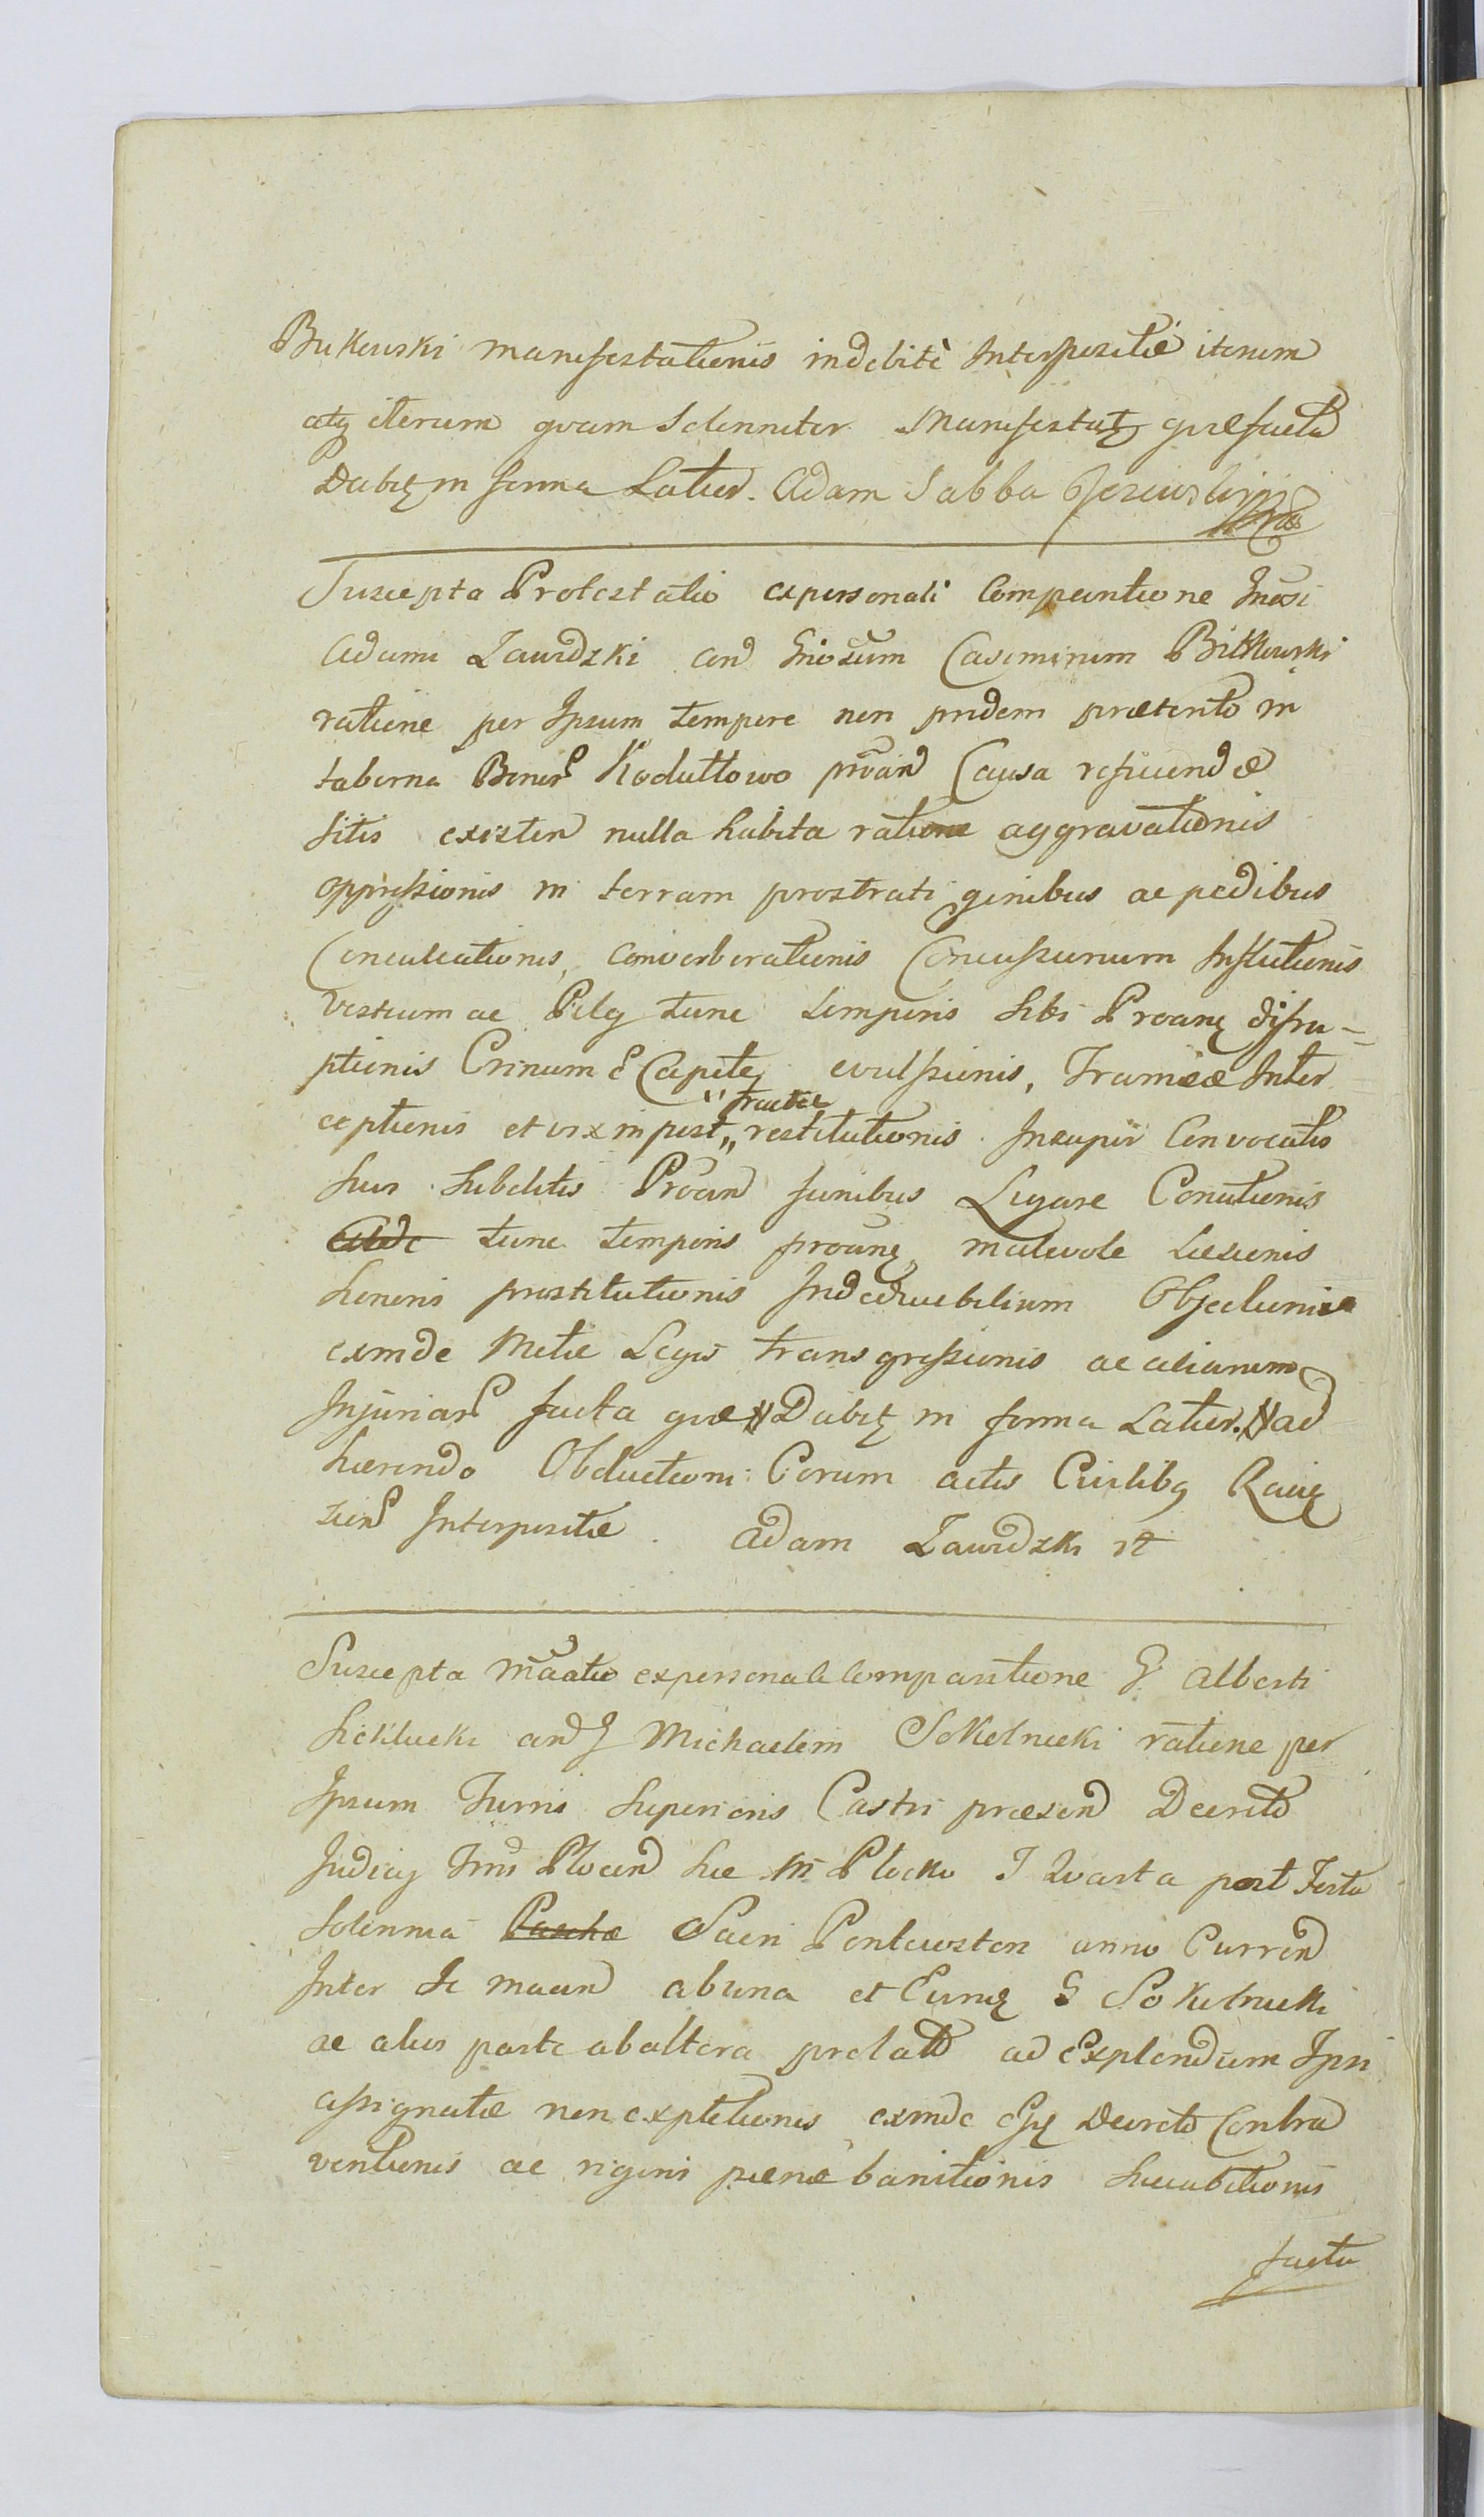 Bukowski manifestationis indebitè Interpositæ iterum
atq iterum quam Solenniter Manifestatꝫ quæ facta
Dabitꝫ in forma Latior. Adam Sabba
Suscepta Protestatio ex personali Comparitione Gnosi
Adami Zawidzki con Gnosum Casimirum Bitkowski
ratione per Ipsum tempore non pridem præterito in
taberna Bonor Kodutlowo proān Causa reficiendæ
sitis existen nulla habita ratione aggravationis
oppressionis in terram prostrati genibus ac pedibus
Conculcationis, converberationis Concussionum Inflictionis
vestium ac Pilej tunc temporis sibi Proanꝫ disru-
ptionis Crinum è Capite evulsionis, Frameæ Inter
ceptionis et vix in post „ tractu „ restitutionis. Insuper Convocatis
suis Subditis Proan funibus Ligare Conationis
tunc temporis proanꝫ malevole Læsionis
honoris prostitutionis Indecibilium Objectionis
exinde Metæ Legis transgressionis ac aliarum
Injuriar facta quæ Dabitꝫ in forma Latior. ad
hærendo Obductioni Corum actis Civilibꝫ Raciꝫ
sien Interpositæ. Adam Zawidzki rt
Suscepta māatio ex personali Comparitione G. Alberti
an G Michaelem Sokolnicki ratione per
Ipsum Turris Superioris Castri præsen Decreto
Judicij Trnis Plocen hic in Plocko F Quarta post Festa
Solennia Paschæ Sacri Pentecosten anno Curren
Inter Se maan ab una et Eunꝫ G Sokolnicki
ac alios parte ab altera prolato ad Explendum Ipsi
assignatæ non expletionis exinde ejꝫ Decreto Contra
ventionis ac rigoris pænæ banitionis Succubitionis
facta